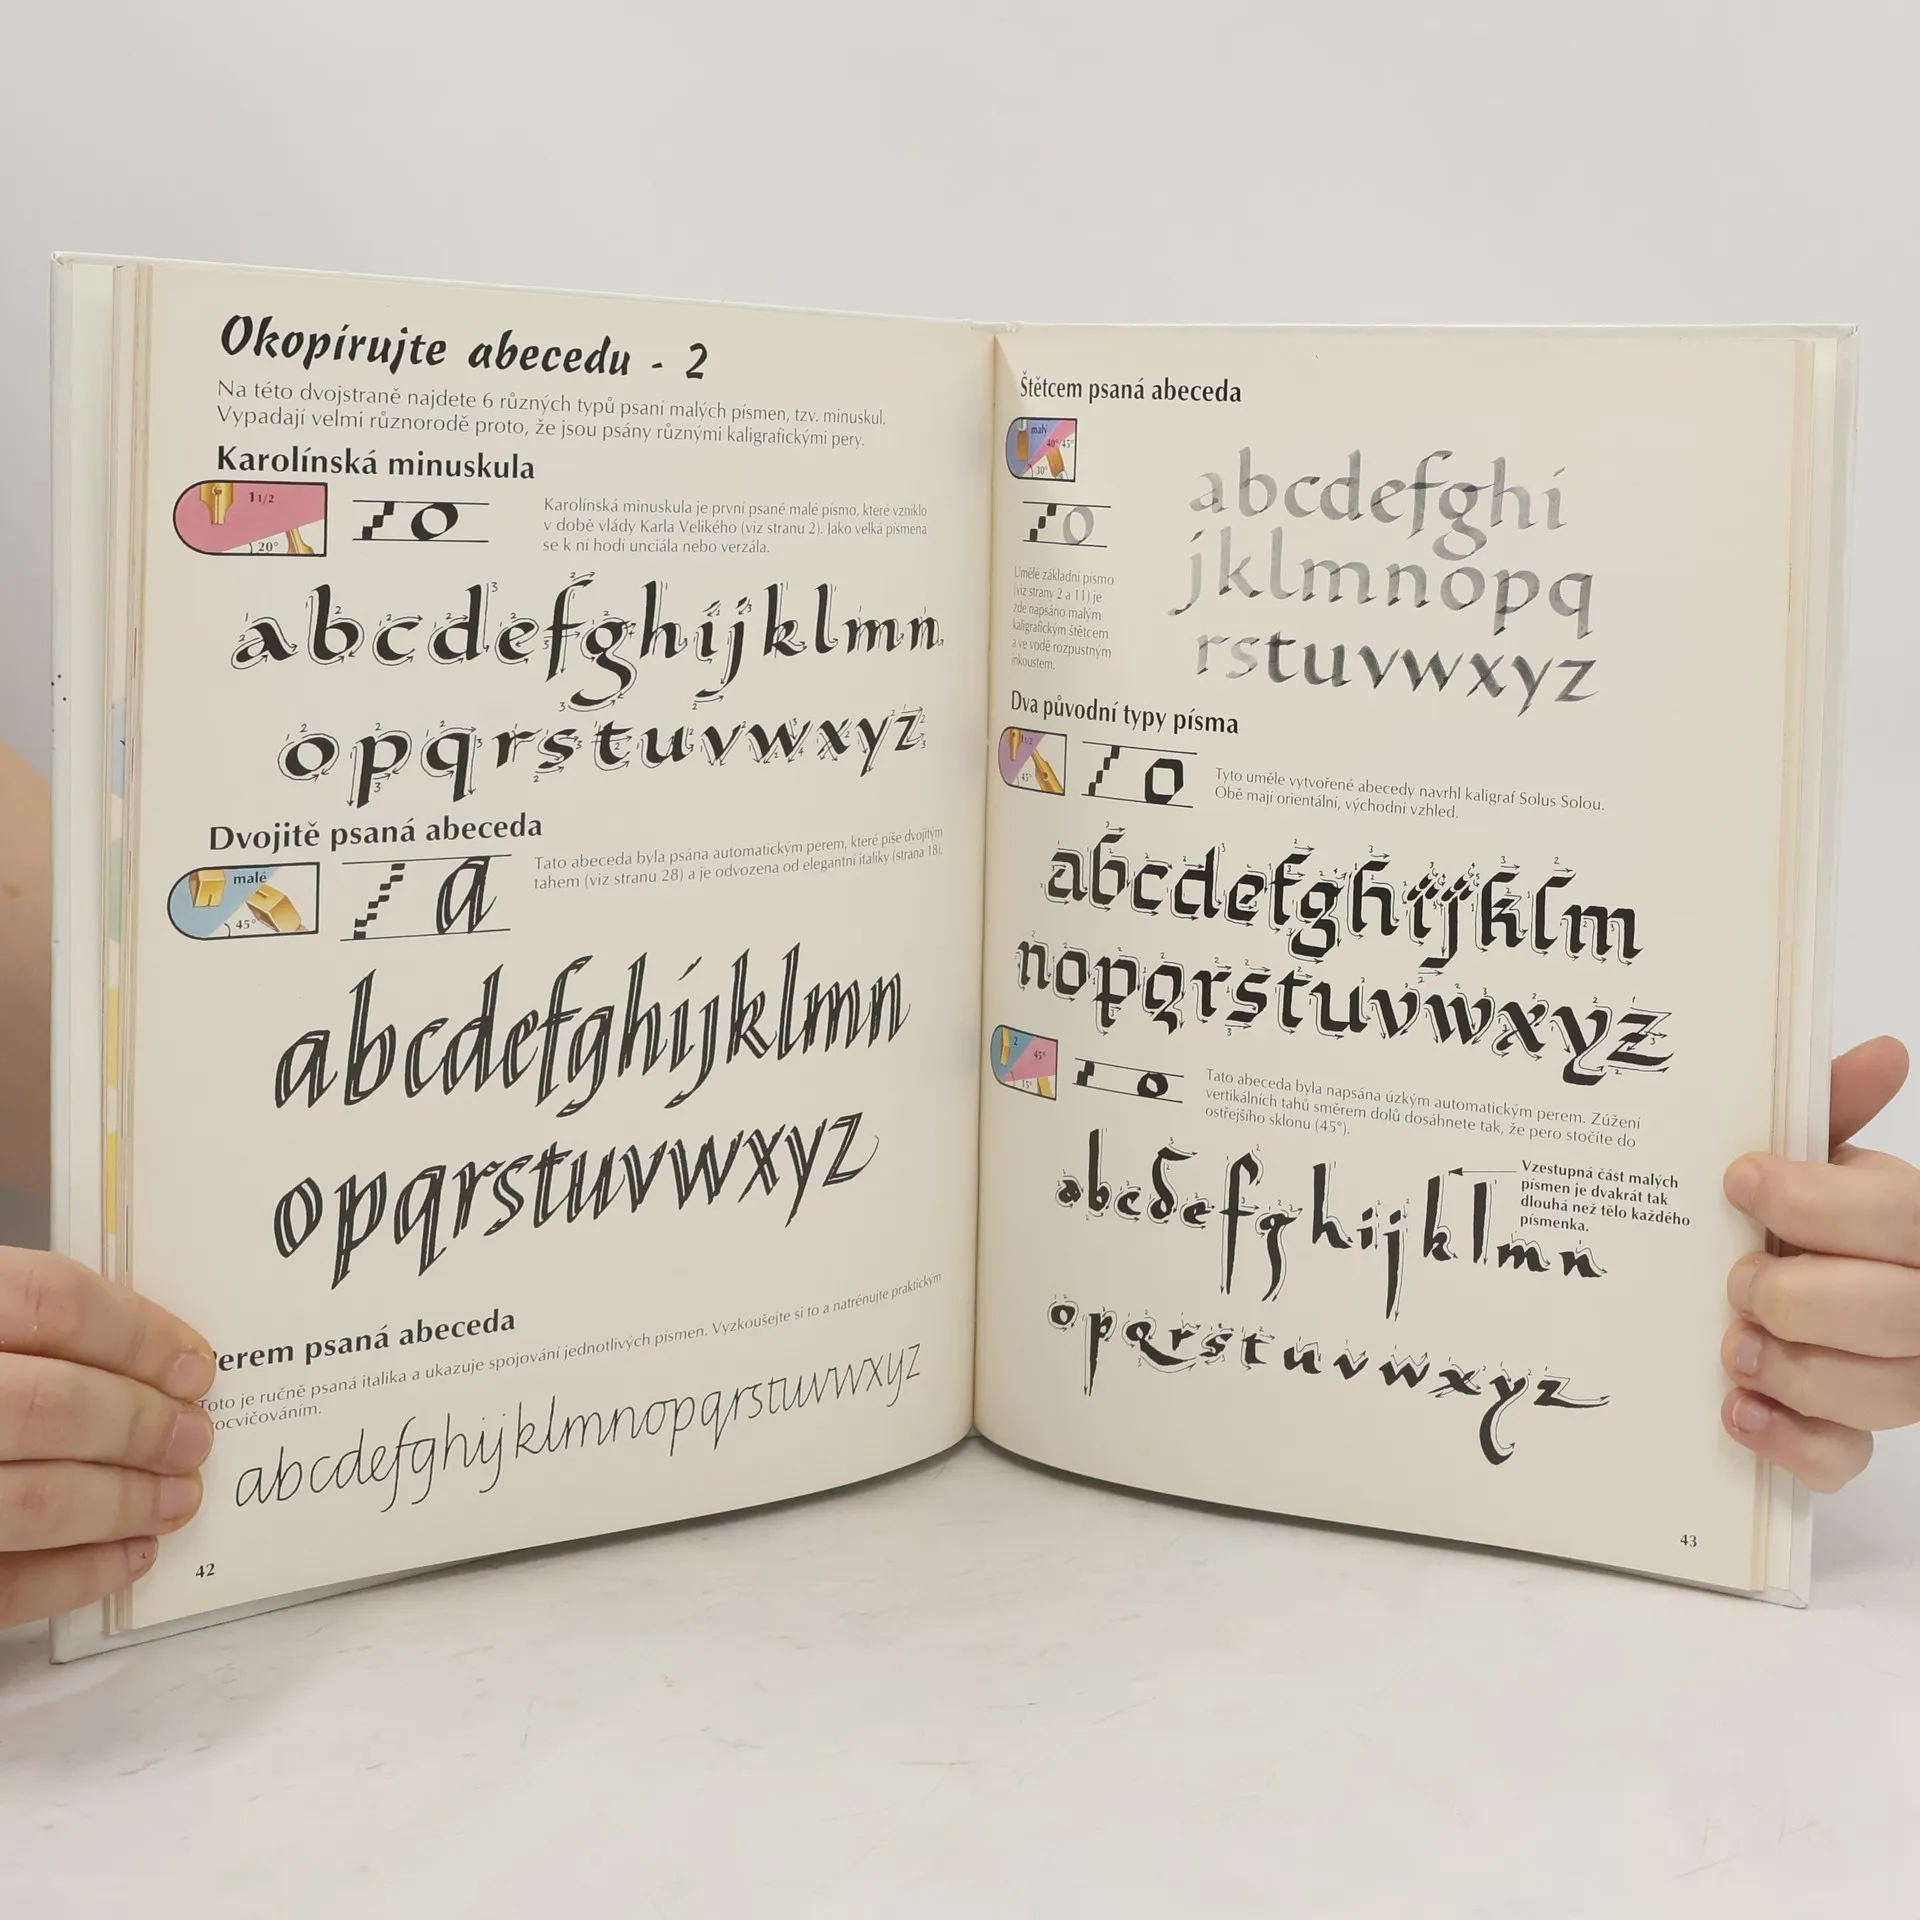 Okopírujte abecedu - 2
Na této dvojstraně najdete 6 různých typů psaní malých písmen, tzv. minuskul.
Vypadají velmi různorodě proto, že jsou psány různými kaligrafickými pery.
Karolínská minuskula
1 1/2
20°
Karolínská minuskula je první psané malé písmo, které vzniklo
v době vlády Karla Velikého (viz stranu 2). Jako velká písmena
se k ní hodí unciála nebo verzála.
abcdefghijklmn
opqrstuvwxyz
Dvojitě psaná abeceda
malé
45°
a
Tato abeceda byla psána automatickým perem, které píše dvojitým
tahem (viz stranu 28) a je odvozena od elegantní italiky (strana 18).
abcdefghijklmn
opqrstuvwxyz
Perem psaná abeceda
Toto je ručně psaná italika a ukazuje spojování jednotlivých písmen. Vyzkoušejte si to a natrénujte praktickým
ocvičováním.
abcdefghijklmnopqrstuvwxyz
42
Štětcem psaná abeceda
malý
40°/45°
30°
o
Umělé základní písmo
(viz strany 2 a 11) je
zde napsáno malým
kaligrafickým štětcem
a ve vodě rozpustným
inkoustem.
abcdefghi
jklmnopq
rstuvwxyz
Dva původní typy písma
1 1/2
45°
o
Tyto uměle vytvořené abecedy navrhl kaligraf Solus Solou.
Obě mají orientální, východní vzhled.
abcdefghijklm
nopqrstuvwxyz
2
45°
15°
o
Tato abeceda byla napsána úzkým automatickým perem. Zúžení
vertikálních tahů směrem dolů dosáhnete tak, že pero stočíte do
ostřejšího sklonu (45°).
abcdefghijklmn
Vzestupná část malých
písmen je dvakrát tak
dlouhá než tělo každého
písmenka.
opqrstuvwxyz
43